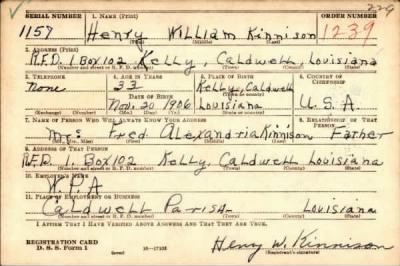 229
SERIAL NUMBER 1. NAME (Print) ORDER NUMBER
1157 Henry William Kinnison 1239
(First) (Middle) (Last)
2. ADDRESS (Print)
R.F.D. 1 Box 102 Kelly, Caldwell, Louisiana
(Number and street or R. F. D. number) (Town) (County) (State)
3. TELEPHONE 4. AGE IN YEARS 5. PLACE OF BIRTH 6. COUNTRY OF CITIZENSHIP
None 33 Kelly, Caldwell
DATE OF BIRTH (Town or county)
Nov. 20 1906 Louisiana U.S.A.
(Exchange) (Number) (Mo.) (Day) (Yr.) (State or country)
7. NAME OF PERSON WHO WILL ALWAYS KNOW YOUR ADDRESS 8. RELATIONSHIP OF THAT PERSON
Mr. Fred Alexandria Kinnison Father
(Mr., Mrs., Miss) (First) (Middle) (Last)
9. ADDRESS OF THAT PERSON
R.F.D. 1. Box 102 Kelly, Caldwell Louisiana
(Number and street or R. F. D. number) (Town) (County) (State)
10. EMPLOYER'S NAME
W.P.A
11. PLACE OF EMPLOYMENT OR BUSINESS
Caldwell Parish Louisiana
(Number and street or R. F. D. number) (Town) (County) (State)
I AFFIRM THAT I HAVE VERIFIED ABOVE ANSWERS AND THAT THEY ARE TRUE.
REGISTRATION CARD
D. S. S. Form 1 (over) 16—17105 Henry W. Kinnison
(Registrant's signature)